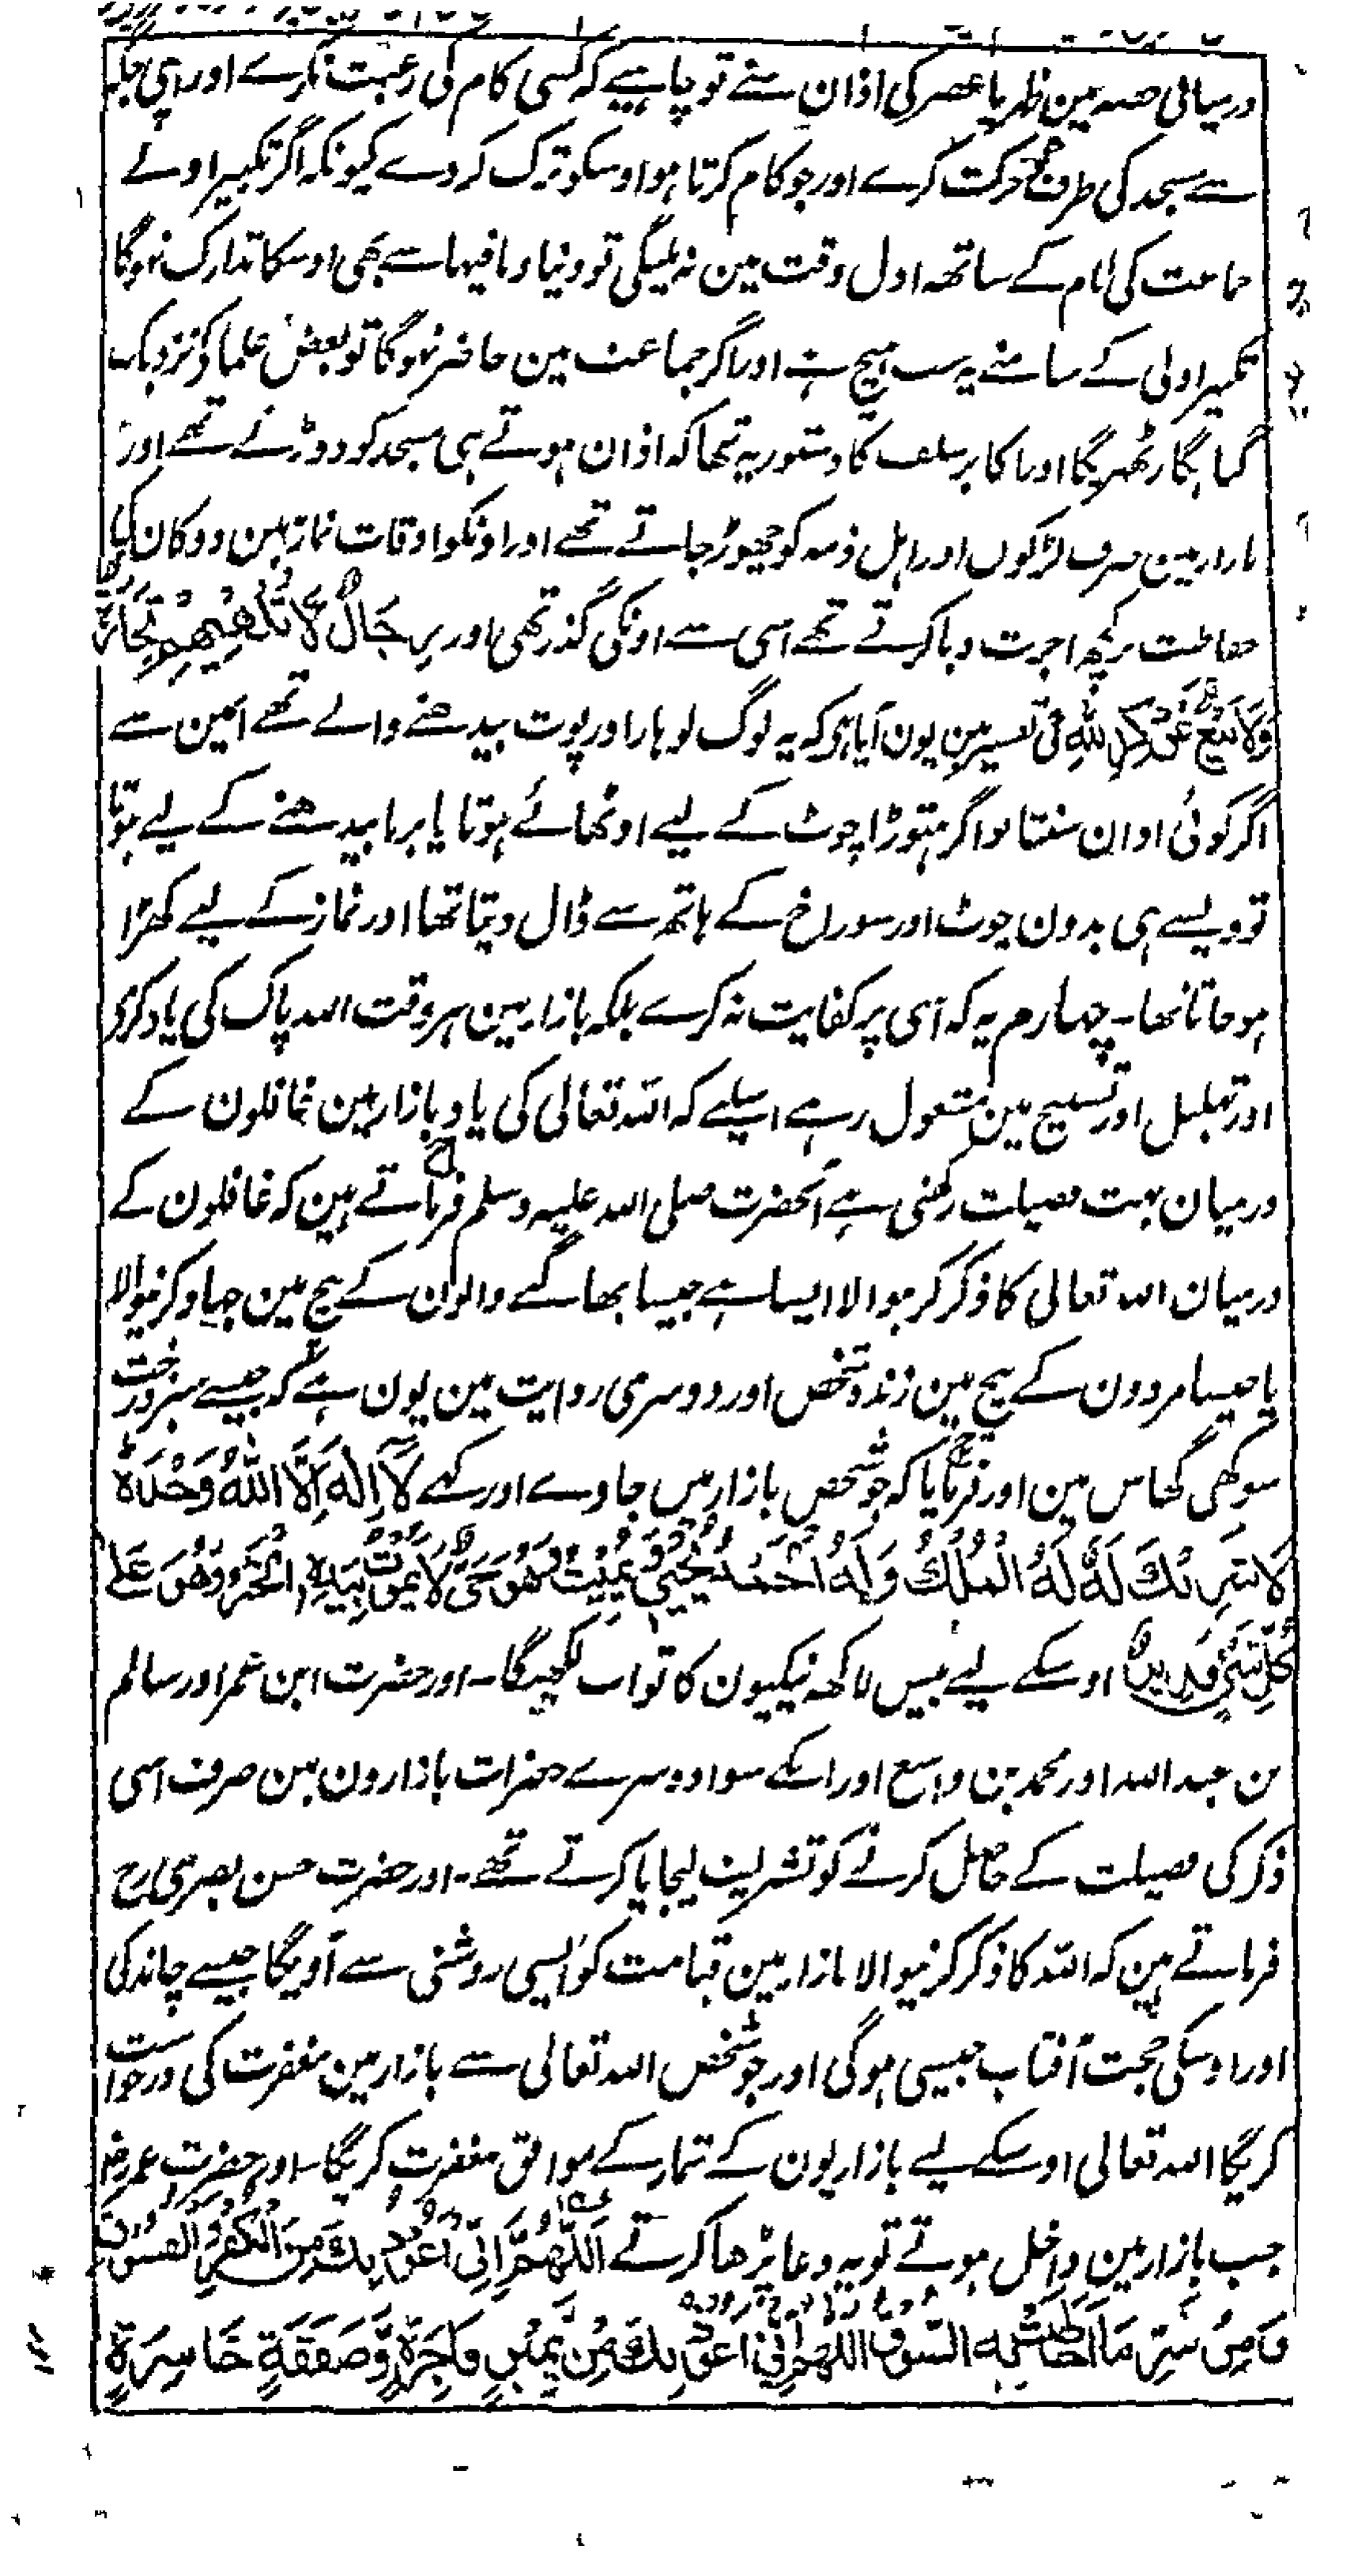 درمیانی حصہ مین ظہر یا عصر کی اذان سنے تو چاہیے کہ کسی کام کی رغبت نکرے اور اپنی جگہ
سے مسجد کی طرف حرکت کرے اور جو کام کرتا ہو اوسکو ترک کر دے کیونکہ اگر تکبیر اولے
جماعت کی امام کے ساتھہ اول وقت مین نہ ملیگی تو دنیا و مافیہا سے بھی اوسکا تدارک نہوگا
تکبیر اولی کے سامنے یہ سب ہیچ ہے اور اگر جماعت مین حاضر نہوگا تو بعض علما کے نزدیک
گناہگار ٹھہریگا اور اکابر سلف کا دستور یہ تھا کہ اذان ہوتے ہی مسجد کو دوڑتے تھے اور
بازار مین صرف لڑکوں اور اہل ذمہ کو چھوڑ جاتے تھے اور اونکو اوقات نماز مین دوکان کی
حفاظت پر کچھ اجرت دیا کرتے تھے اسی سے اونکی گذر تھی اور رِجَالٌ لَا تُلْهِيهِمْ تِجَارَةٌ
وَلَا بَيْعٌ عَنْ ذِكْرِ اللّٰهِ کی تفسیر مین یون آیا ہی کہ یہ لوگ لوہار اور پوت بیدھنے والے تھے انمین سے
اگر کوئی اذان سنتا سو اگر ہتوڑا چوٹ کے لیے اوٹھائے ہوتا یا برما بیدھنے کے لیے ہوتا
تو ویسے ہی بدون چوٹ اور سوراخ کے ہاتھ سے ڈال دیتا تھا اور نماز کے لیے کھڑا
ہو جاتا تھا۔ چہارم یہ کہ اسی پر کفایت نہ کرے بلکہ بازار مین ہر وقت اللہ پاک کی یاد کری
اور تہلیل اور تسبیح مین مشغول رہے اسلیے کہ اللہ تعالی کی یاد بازار مین غافلون کے
درمیان بہت فضیلت رکھتی ہے آنحضرت صلی اللہ علیہ وسلم فرماتے ہین کہ غافلون کے
درمیان اللہ تعالی کا ذکر کرنیوالا ایسا ہے جیسا بھاگنے والون کے بیچ مین جہاد کرنیوالا
یا جیسا مردون کے بیچ مین زندہ شخص اور دوسری روایت مین یون ہے کہ جیسے سبز درخت
سوکھی گھاس مین اور فرمایا کہ جو شخص بازار مین جاوے اور کہے لَا اِلٰهَ اِلَّا اللّٰهُ وَحْدَهٗ
لَا شَرِيْكَ لَهٗ لَهُ الْمُلْكُ وَلَهُ الْحَمْدُ يُحْيِيْ وَيُمِيْتُ وَهُوَ حَيٌّ لَا يَمُوْتُ بِيَدِهِ الْخَيْرُ وَهُوَ عَلٰے
كُلِّ شَيْءٍ قَدِيْرٌ اوسکے لیے بیس لاکھہ نیکیون کا ثواب لکھیگا۔ اور حضرت ابن عمر اور سالم
بن عبد اللہ اور محمد بن واسع اور اسکے سوا دوسرے حضرات بازارون مین صرف اسی
ذکر کی فضیلت کے حاصل کرنے کو تشریف لیجایا کرتے تھے۔ اور حضرت حسن بصری رح
فرماتے ہین کہ اللہ کا ذکر کرنیوالا بازار مین قیامت کو ایسی روشنی سے آویگا جیسے چاند کی
اور اوسکی حجت آفتاب جیسی ہوگی اور جو شخص اللہ تعالی سے بازار مین مغفرت کی درخواست
کریگا اللہ تعالی اوسکے لیے بازاریون کے شمار کے موافق مغفرت کریگا۔ اور حضرت عمر رض
جب بازار مین داخل ہوتے تو یہ دعا پڑھا کرتے اَللّٰهُمَّ اِنِّيْ اَعُوْذُ بِكَ مِنَ الْكُفْرِ وَالْفُسُوْقِ
وَمِنْ شَرِّ مَا اَحَاطَتْ بِهِ السُّوْقُ اَللّٰهُمَّ اِنِّيْ اَعُوْذُ بِكَ مِنْ يَمِيْنٍ فَاجِرَةٍ وَّصَفْقَةٍ خَاسِرَةٍ